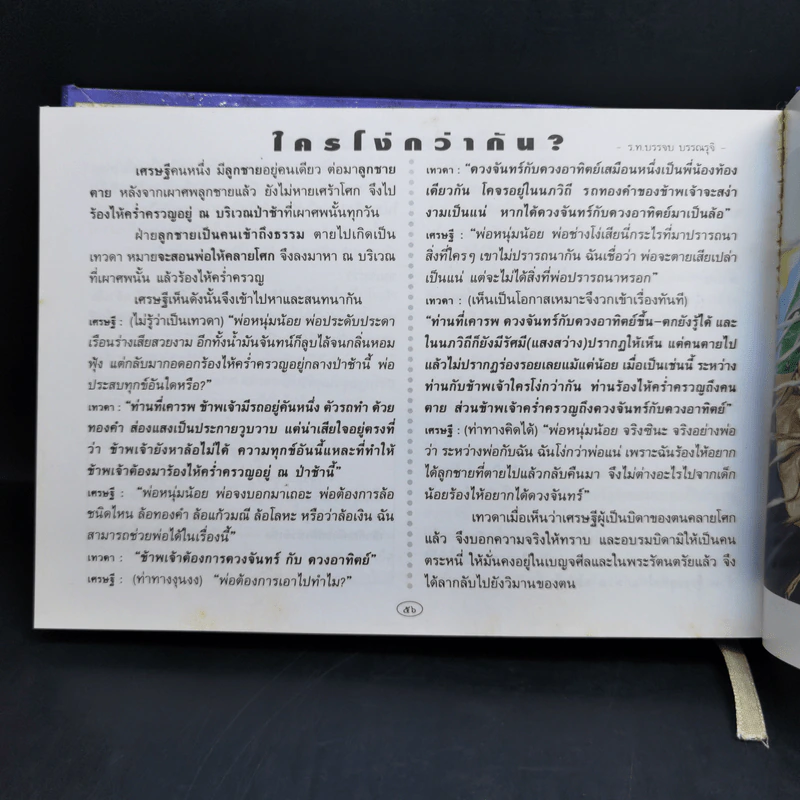 ใครโง่กว่ากัน?
- ร.ท.บรรจบ บรรณรุจิ -
เศรษฐีคนหนึ่ง มีลูกชายอยู่คนเดียว ต่อมาลูกชาย
ตาย หลังจากเผาศพลูกชายแล้ว ยังไม่หายเศร้าโศก จึงไป
ร้องไห้คร่ำครวญอยู่ ณ บริเวณป่าช้าที่เผาศพนั้นทุกวัน
ฝ่ายลูกชายเป็นคนเข้าถึงธรรม ตายไปเกิดเป็น
เทวดา หมายจะสอนพ่อให้คลายโศก จึงลงมาหา ณ บริเวณ
ที่เผาศพนั้น แล้วร้องไห้คร่ำครวญ
เศรษฐีเห็นดังนั้นจึงเข้าไปหาและสนทนากัน
เศรษฐี : (ไม่รู้ว่าเป็นเทวดา) "พ่อหนุ่มน้อย พ่อประดับประดา
เรือนร่างเสียสวยงาม อีกทั้งน้ำมันจันทน์ก็ลูบไล้จนกลิ่นหอม
ฟุ้ง แต่กลับมากอดอกร้องไห้คร่ำครวญอยู่กลางป่าช้านี้ พ่อ
ประสบทุกข์อันใดหรือ?"
เทวดา : "ท่านที่เคารพ ข้าพเจ้ามีรถอยู่คันหนึ่ง ตัวรถทำ ด้วย
ทองคำ ส่องแสงเป็นประกายวูบวาบ แต่น่าเสียใจอยู่ตรงที่
ว่า ข้าพเจ้ายังหาล้อไม่ได้ ความทุกข์อันนี้แหละที่ทำให้
ข้าพเจ้าต้องมาร้องไห้คร่ำครวญอยู่ ณ ป่าช้านี้"
เศรษฐี : "พ่อหนุ่มน้อย พ่อจงบอกมาเถอะ พ่อต้องการล้อ
ชนิดไหน ล้อทองคำ ล้อแก้วมณี ล้อโลหะ หรือว่าล้อเงิน ฉัน
สามารถช่วยพ่อได้ในเรื่องนี้"
เทวดา : "ข้าพเจ้าต้องการดวงจันทร์ กับ ดวงอาทิตย์"
เศรษฐี : (ท่าทางงุนงง) "พ่อต้องการเอาไปทำไม?"
เทวดา : "ดวงจันทร์กับดวงอาทิตย์เสมือนหนึ่งเป็นพี่น้องท้อง
เดียวกัน โคจรอยู่ในนภวิถี รถทองคำของข้าพเจ้าจะสง่า
งามเป็นแน่ หากได้ดวงจันทร์กับดวงอาทิตย์มาเป็นล้อ"
เศรษฐี : "พ่อหนุ่มน้อย พ่อช่างโง่เสียนี่กระไรที่มาปรารถนา
สิ่งที่ใครๆ เขาไม่ปรารถนากัน ฉันเชื่อว่า พ่อจะตายเสียเปล่า
เป็นแน่ แต่จะไม่ได้สิ่งที่พ่อปรารถนาหรอก"
เทวดา : (เห็นเป็นโอกาสเหมาะจึงวกเข้าเรื่องทันที)
"ท่านที่เคารพ ดวงจันทร์กับดวงอาทิตย์ขึ้น-ตกยังรู้ได้ และ
ในนภวิถีก็ยังมีรัศมี(แสงสว่าง)ปรากฏให้เห็น แต่คนตายไป
แล้วไม่ปรากฏร่องรอยเลยแม้แต่น้อย เมื่อเป็นเช่นนี้ ระหว่าง
ท่านกับข้าพเจ้าใครโง่กว่ากัน ท่านร้องไห้คร่ำครวญถึงคน
ตาย ส่วนข้าพเจ้าคร่ำครวญถึงดวงจันทร์กับดวงอาทิตย์"
เศรษฐี : (ท่าทางคิดได้) "พ่อหนุ่มน้อย จริงซินะ จริงอย่างพ่อ
ว่า ระหว่างพ่อกับฉัน ฉันโง่กว่าพ่อแน่ เพราะฉันร้องไห้อยาก
ได้ลูกชายที่ตายไปแล้วกลับคืนมา จึงไม่ต่างอะไรไปจากเด็ก
น้อยร้องไห้อยากได้ดวงจันทร์"
เทวดาเมื่อเห็นว่าเศรษฐีผู้เป็นบิดาของตนคลายโศก
แล้ว จึงบอกความจริงให้ทราบ และอบรมบิดามิให้เป็นคน
ตระหนี่ ให้มั่นคงอยู่ในเบญจศีลและในพระรัตนตรัยแล้ว จึง
ได้ลากลับไปยังวิมานของตน
๕๖